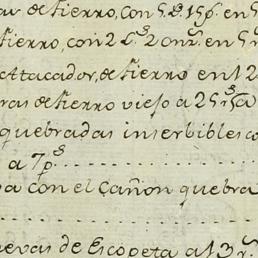 de fierro, con 5 @s. 15 p. en 5
fierro, con 2 @s. 2 onz. en 5 r
Atacador, de fierro en 12
de fierro viejo a 25 rs. @
quebradas inserbibles
a 7 ps.
con el Cañon quebra
de Escopeta a 13 r.